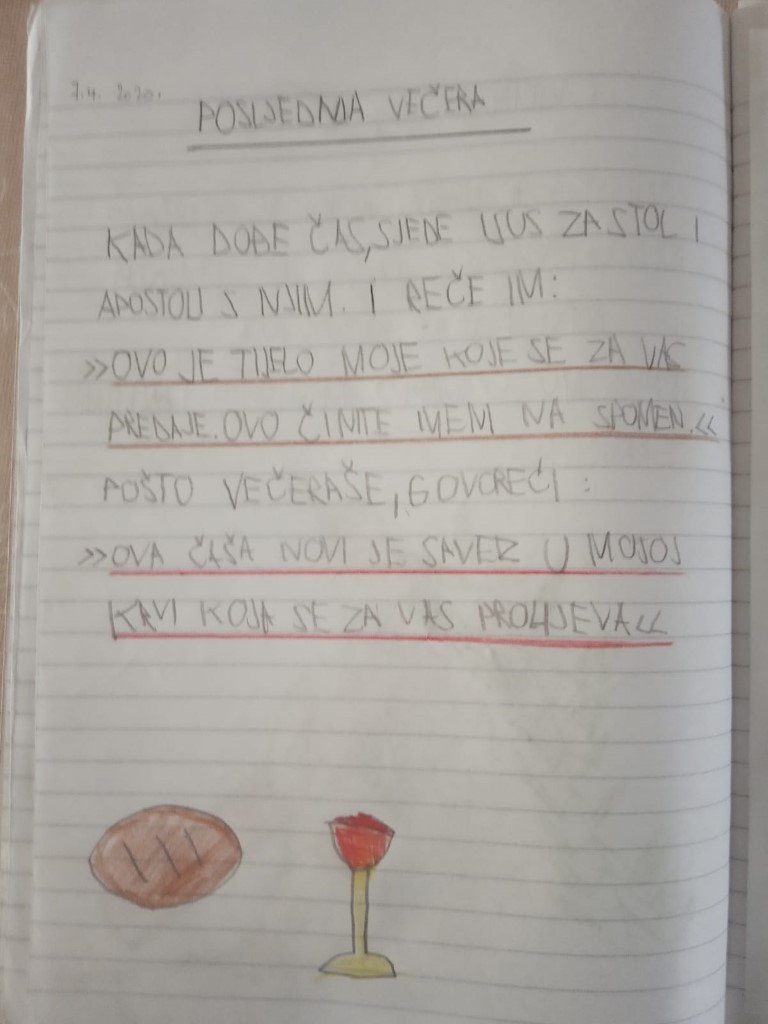 7.4. 2020.
POSLJEDNJA VEČERA
KADA DOĐE ČAS, SJEDE ISUS ZA STOL I
APOSTOLI S NJIM. I REČE IM:
»OVO JE TIJELO MOJE KOJE SE ZA VAS
PREDAJE. OVO ČINITE MENI NA SPOMEN.«
POŠTO VEČERAŠE, GOVOREĆI :
»OVA ČAŠA NOVI JE SAVEZ U MOJOJ
KRVI KOJA SE ZA VAS PROLIJEVA«